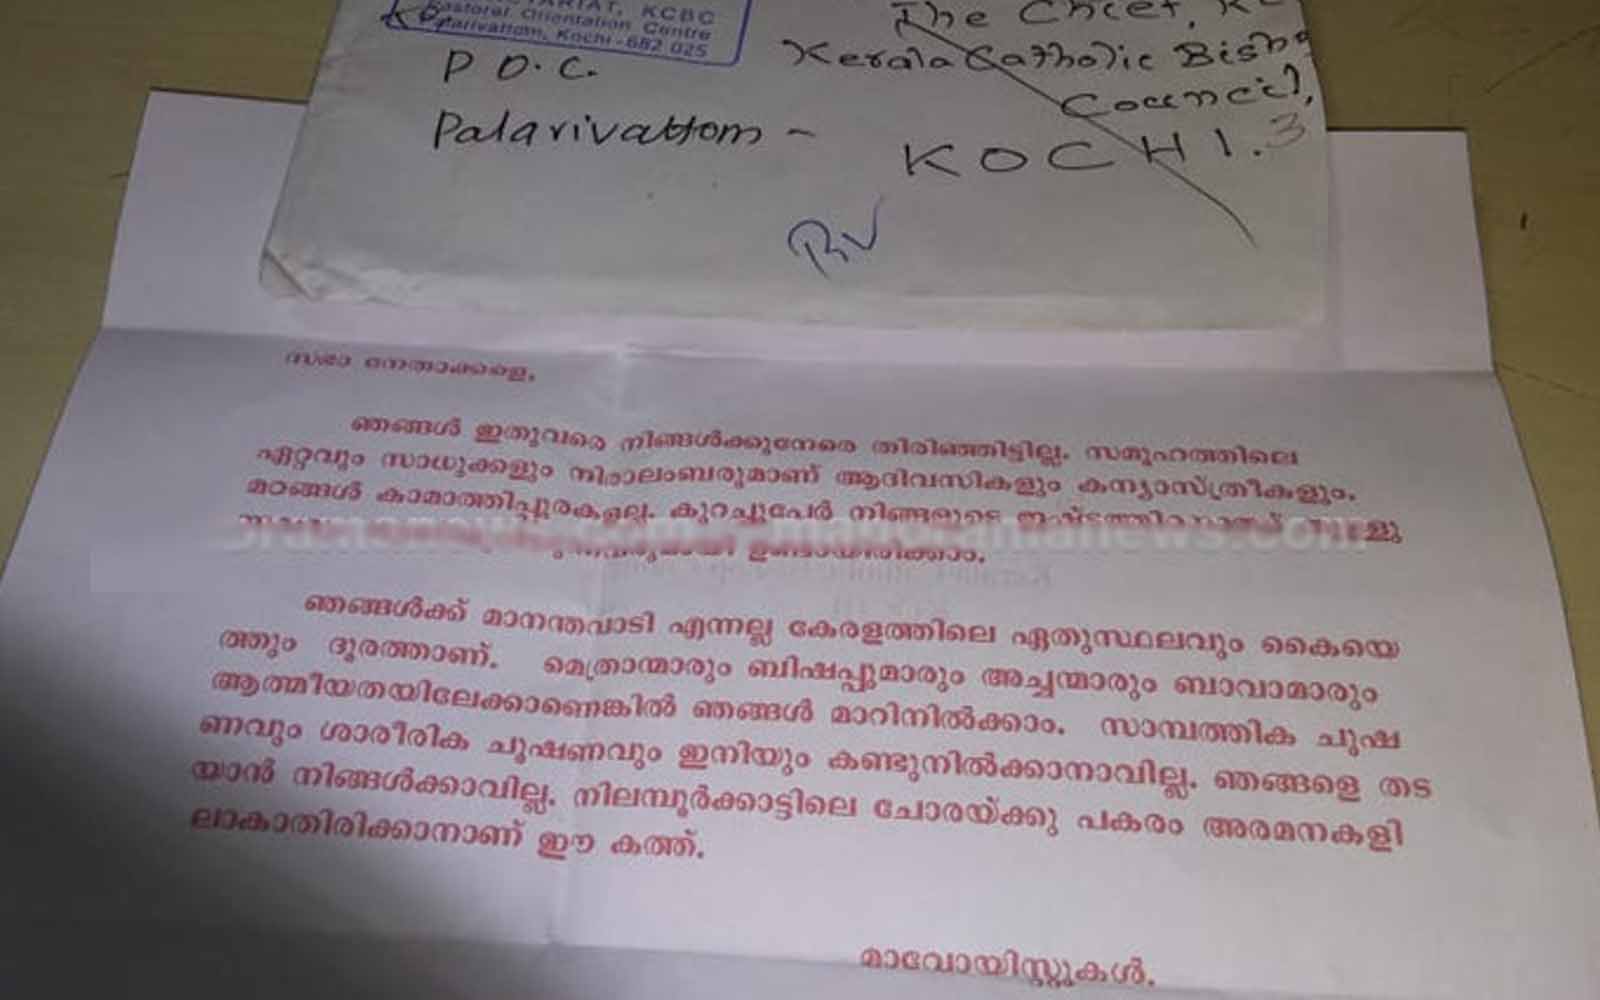 KCBC
Pastoral Orientation Centre
Palarivattom, Kochi-682 025
P O. C.
Palarivattom -
The Chief,
Kerala Catholic
Council,
KOCHI.
സഭാ നേതാക്കളെ,
ഞങ്ങൾ ഇതുവരെ നിങ്ങൾക്കുനേരെ തിരിഞ്ഞിട്ടില്ല. സമൂഹത്തിലെ
ഏറ്റവും സാധുക്കളും നിരാലംബരുമാണ് ആദിവസികളും കന്യാസ്ത്രീകളും.
മഠങ്ങൾ കാമാത്തിപ്പുരകളല്ല. കുറച്ചുപേർ നിങ്ങളുടെ
ഉണ്ടായിരിക്കാം.
manoramanews.com
ഞങ്ങൾക്ക് മാനന്തവാടി എന്നല്ല കേരളത്തിലെ ഏതുസ്ഥലവും കൈയെ
ത്തും ദൂരത്താണ്. മെത്രാന്മാരും ബിഷപ്പുമാരും അച്ചന്മാരും ബാവാമാരും
ആത്മീയതയിലേക്കാണെങ്കിൽ ഞങ്ങൾ മാറിനിൽക്കാം. സാമ്പത്തിക ചൂഷ
ണവും ശാരീരിക ചൂഷണവും ഇനിയും കണ്ടുനിൽക്കാനാവില്ല. ഞങ്ങളെ തട
യാൻ നിങ്ങൾക്കാവില്ല. നിലമ്പൂർക്കാട്ടിലെ ചോരയ്ക്കു പകരം അരമനകളി
ലാകാതിരിക്കാനാണ് ഈ കത്ത്.
മാവോയിസ്റ്റുകൾ.